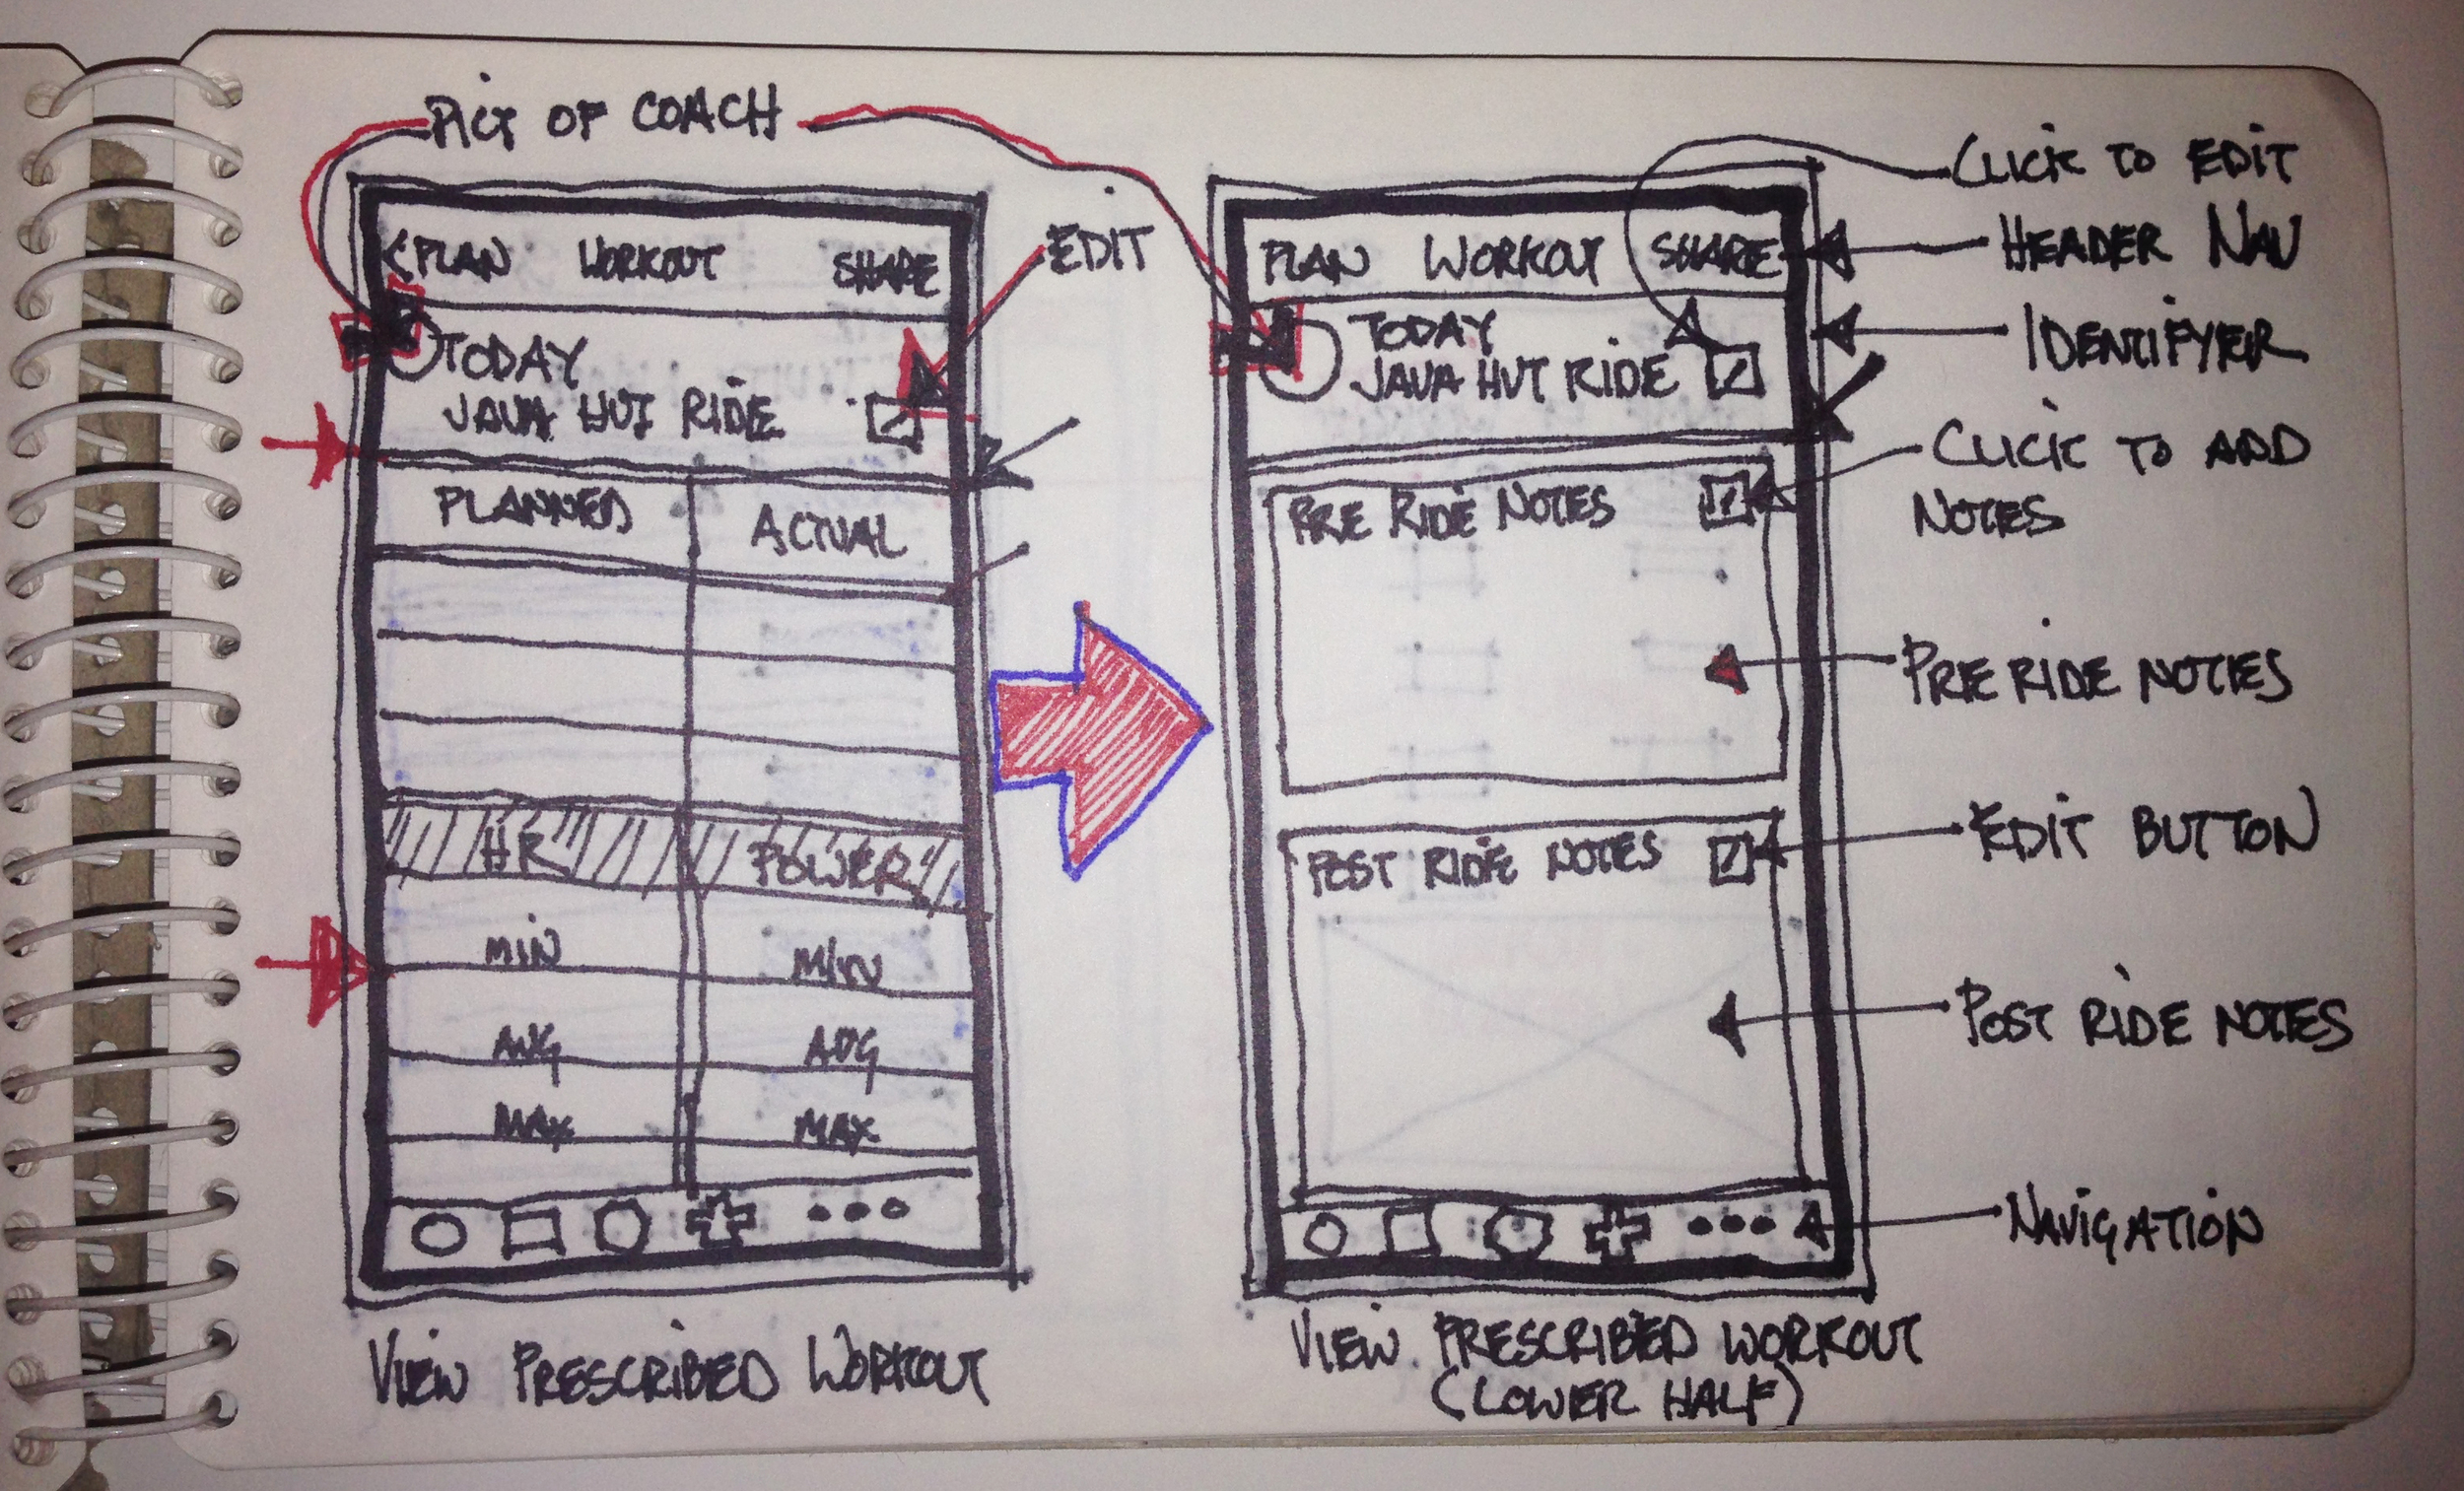 PICT OF COACH
<PLAN WORKOUT SHARE
TODAY
JAVA HUT RIDE
EDIT
PLANNED ACTUAL
HR POWER
MIN MIN
AVG AVG
MAX MAX
VIEW PRESCRIBED WORKOUT
PLAN WORKOUT SHARE
TODAY
JAVA HUT RIDE
PRE RIDE NOTES
POST RIDE NOTES
VIEW PRESCRIBED WORKOUT
(LOWER HALF)
CLICK TO EDIT
HEADER NAV
IDENTIFYER
CLICK TO ADD
NOTES
PRE RIDE NOTES
EDIT BUTTON
POST RIDE NOTES
NAVIGATION